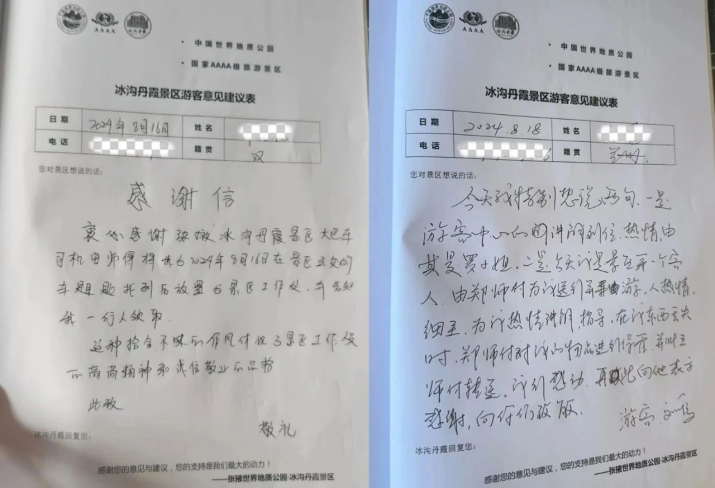 AAAA
• 中国世界地质公园
• 国家AAAA级旅游景区
冰沟丹霞景区游客意见建议表
日期 2024年8月16日 姓名
电话 籍贯 汉
您对景区想说的话:
感谢信
衷心感谢张掖冰沟丹霞景区大巴车
司机 师傅将我 2024年8月16日在景区 的
车 后放置 景区工作处,并告知
我一行人
这种拾金不昧的作风体现了景区工作
的高尚精神和诚信敬业的品格
此致
敬礼
冰沟丹霞回复您:
感谢您的意见与建议,您的支持是我们最大的动力!
——张掖世界地质公园·冰沟丹霞景区
AAAA
• 中国世界地质公园
• 国家AAAA级旅游景区
冰沟丹霞景区游客意见建议表
日期 2024.8.18 姓名
电话 籍贯 兰州
您对景区想说的话:
今天我特别想说两句,一是
游客中心的 讲解 热情 尤
其是罗小姐,二是今天 景区 一个客
人,由郑师付为我 游,人热情
细至,为我热情讲解 指导,在我东西丢失
时,郑师付对我的物品进行保管并叫王
师付转至,我别感动,再此向他表示
感谢,向你们致敬。
游客
冰沟丹霞回复您:
感谢您的意见与建议,您的支持是我们最大的动力!
——张掖世界地质公园·冰沟丹霞景区